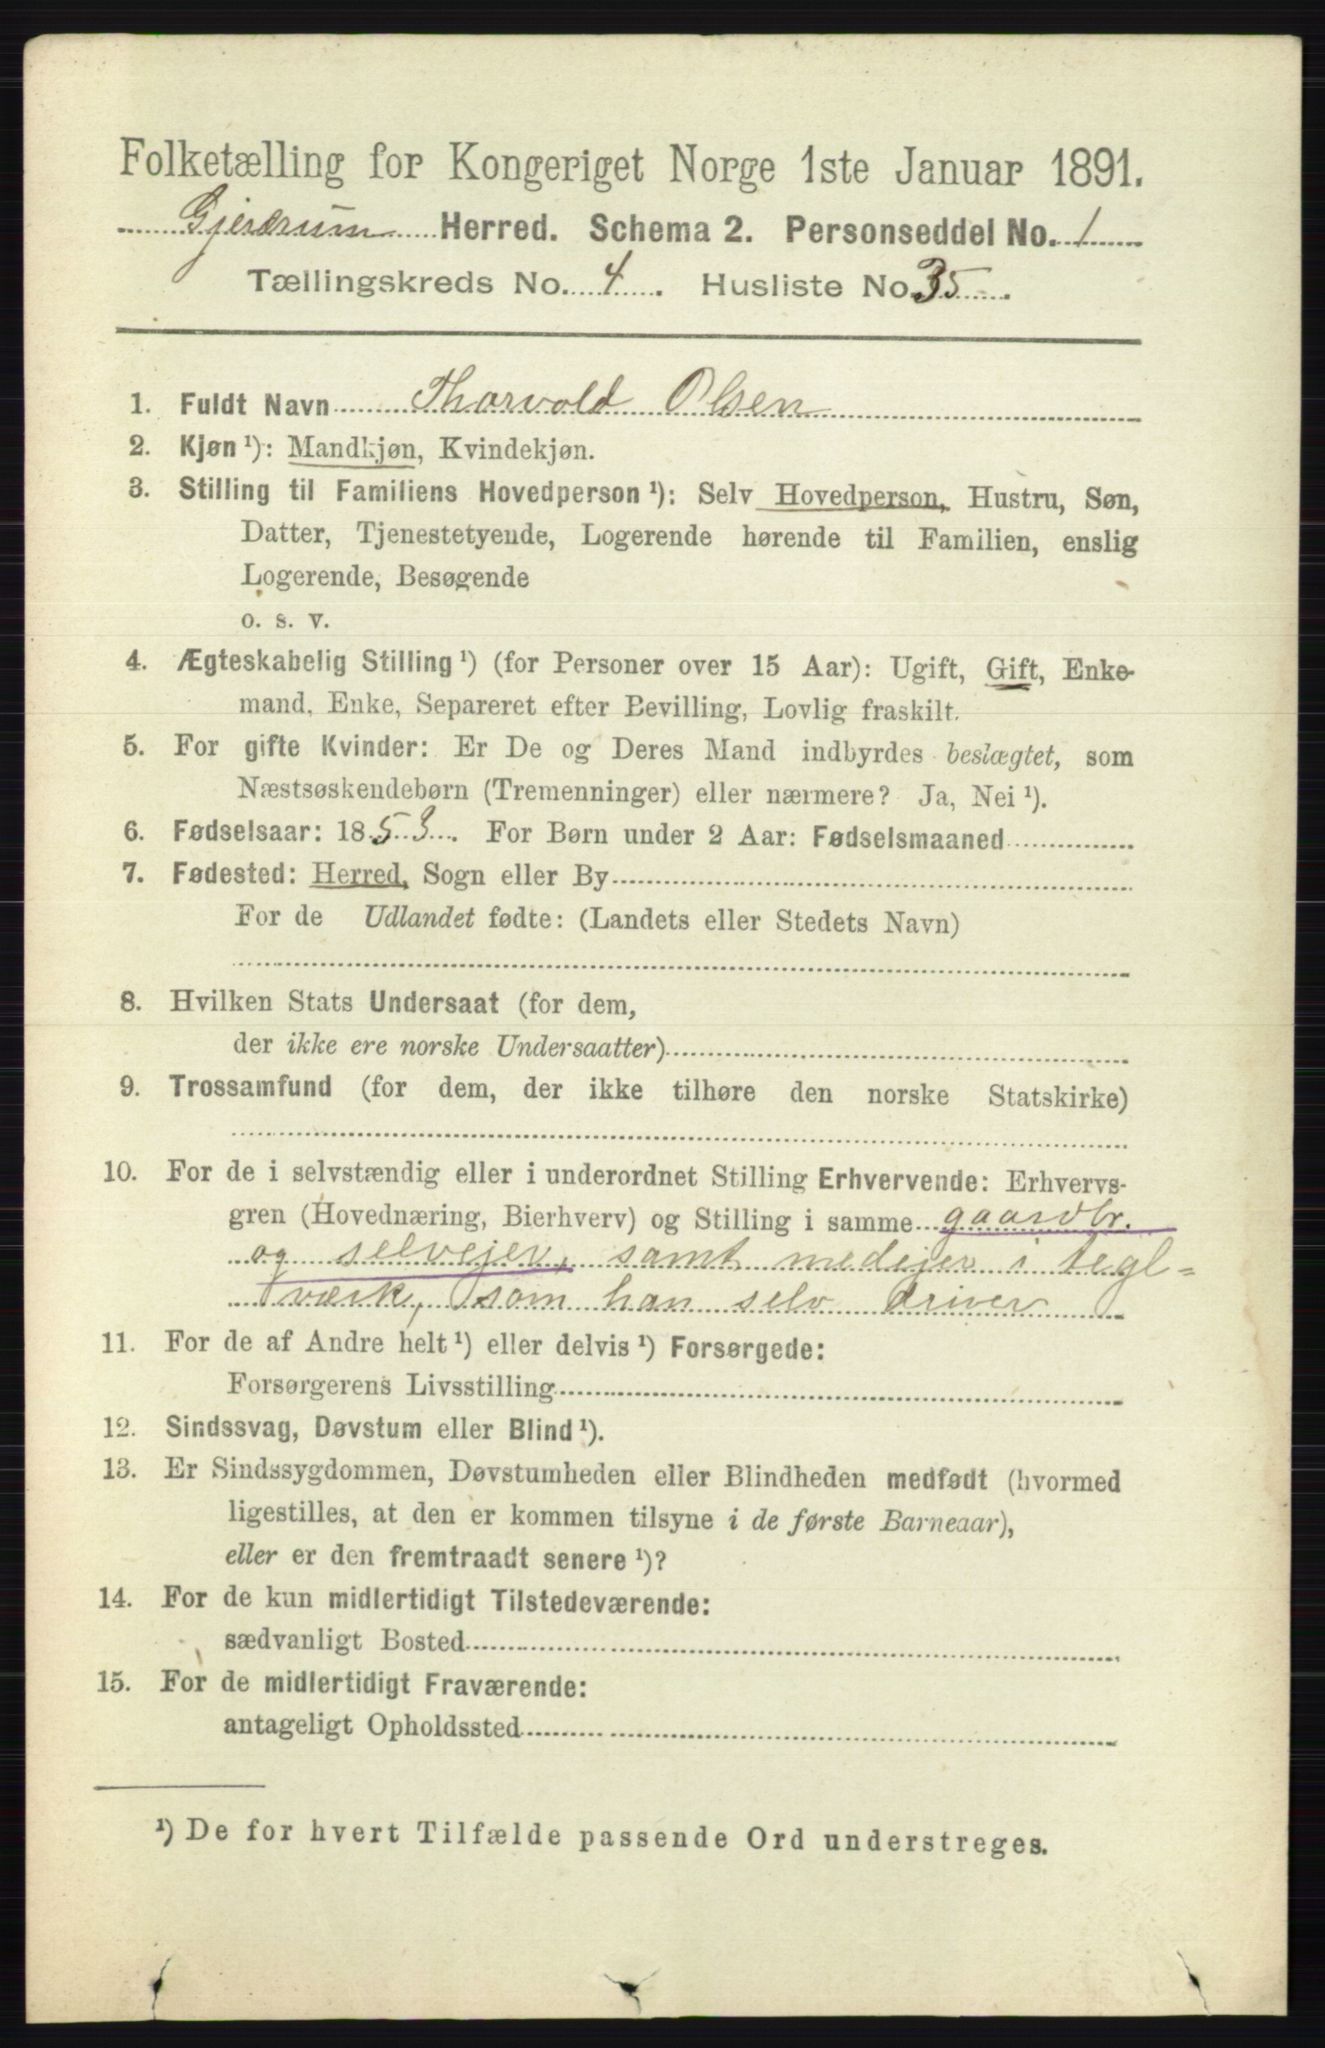 Folketælling for Kongeriget Norge 1ste Januar 1891.
Gjerdrum Herred. Schema 2. Personseddel No. 1
Tællingskreds No. 4. Husliste No. 35.
1. Fuldt Navn Thorvald Olsen
2. Kjøn ¹): Mandkjøn, Kvindekjøn.
3. Stilling til Familiens Hovedperson ¹): Selv Hovedperson, Hustru, Søn,
Datter, Tjenestetyende, Logerende hørende til Familien, enslig
Logerende, Besøgende
o. s. v.
4. Ægteskabelig Stilling ¹) (for Personer over 15 Aar): Ugift, Gift, Enke-
mand, Enke, Separeret efter Bevilling, Lovlig fraskilt.
5. For gifte Kvinder: Er De og Deres Mand indbyrdes beslægtet, som
Næstsøskendebørn (Tremenninger) eller nærmere? Ja, Nei ¹).
6. Fødselsaar: 1853. For Børn under 2 Aar: Fødselsmaaned
7. Fødested: Herred, Sogn eller By
For de Udlandet fødte: (Landets eller Stedets Navn)
8. Hvilken Stats Undersaat (for dem,
der ikke ere norske Undersaatter)
9. Trossamfund (for dem, der ikke tilhøre den norske Statskirke)
10. For de i selvstændig eller i underordnet Stilling Erhvervende: Erhvervs-
gren (Hovednæring, Bierhverv) og Stilling i samme gaardbr.
og selvejer, samt medejer i tegl=
værk, som han selv driver
11. For de af Andre helt ¹) eller delvis ¹) Forsørgede:
Forsørgerens Livsstilling
12. Sindssvag, Døvstum eller Blind ¹).
13. Er Sindssygdommen, Døvstumheden eller Blindheden medfødt (hvormed
ligestilles, at den er kommen tilsyne i de første Barneaar),
eller er den fremtraadt senere ¹)?
14. For de kun midlertidigt Tilstedeværende:
sædvanligt Bosted
15. For de midlertidigt Fraværende:
antageligt Opholdssted
¹) De for hvert Tilfælde passende Ord understreges.